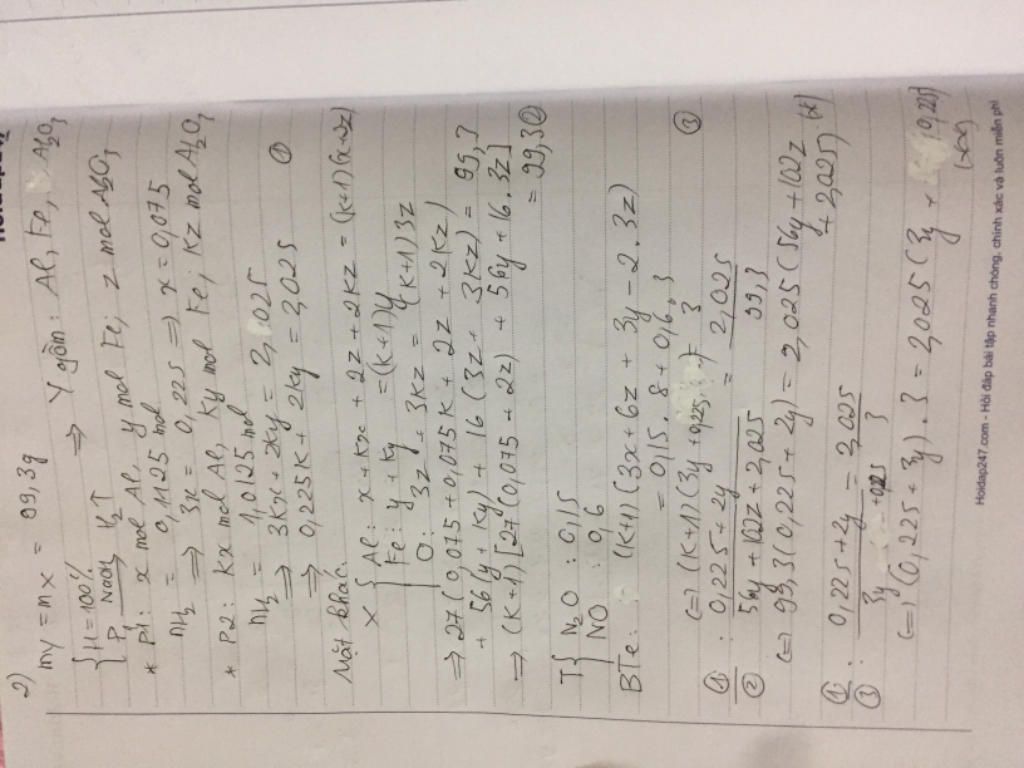 2) mY = mX = 99,3g
{ H = 100% ⇒ Y gồm: Al, Fe, Al2O3
P1 NaOH→ H2↑
* P1: x mol Al, y mol Fe; z mol Al2O3
nH2 = 0,1125 mol
⇒ 3x = 0,225 ⇒ x = 0,075
* P2: kx mol Al, ky mol Fe; kz mol Al2O3
nH2 = 1,0125 mol
⇒ 3kx + 2ky = 2,025
⇒ 0,225k + 2ky = 2,025 ①
Mặt khác:
X { Al: x + kx + 2z + 2kz = (k+1)(x+2z)
Fe: y + ky = (k+1)y
O: 3z + 3kz = (k+1)3z
⇒ 27(0,075 + 0,075k + 2z + 2kz)
+ 56(y + ky) + 16(3z + 3kz) = 99,3
⇒ (k+1)[27(0,075 + 2z) + 56y + 16.3z] = 99,3 ②
T { N2O : 0,15
NO : 0,6
BTe: (k+1)(3x + 6z + 3y - 2.3z)
= 0,15.8 + 0,6.3
(=) (k+1)(3y + 0,225) = 3 ③
①/②: (0,225 + 2y)/(56y + 102z + 2,025) = 2,025/99,3
(=) 99,3(0,225 + 2y) = 2,025(56y + 102z + 2,025) (*)
①/③: (0,225 + 2y)/(3y + 0,225) = 2,025/3
(=) (0,225 + 3y).3 = 2,025(3y + 0,225)
Hoidap247.com - Hỏi đáp bài tập nhanh chóng, chính xác và luôn miễn phí